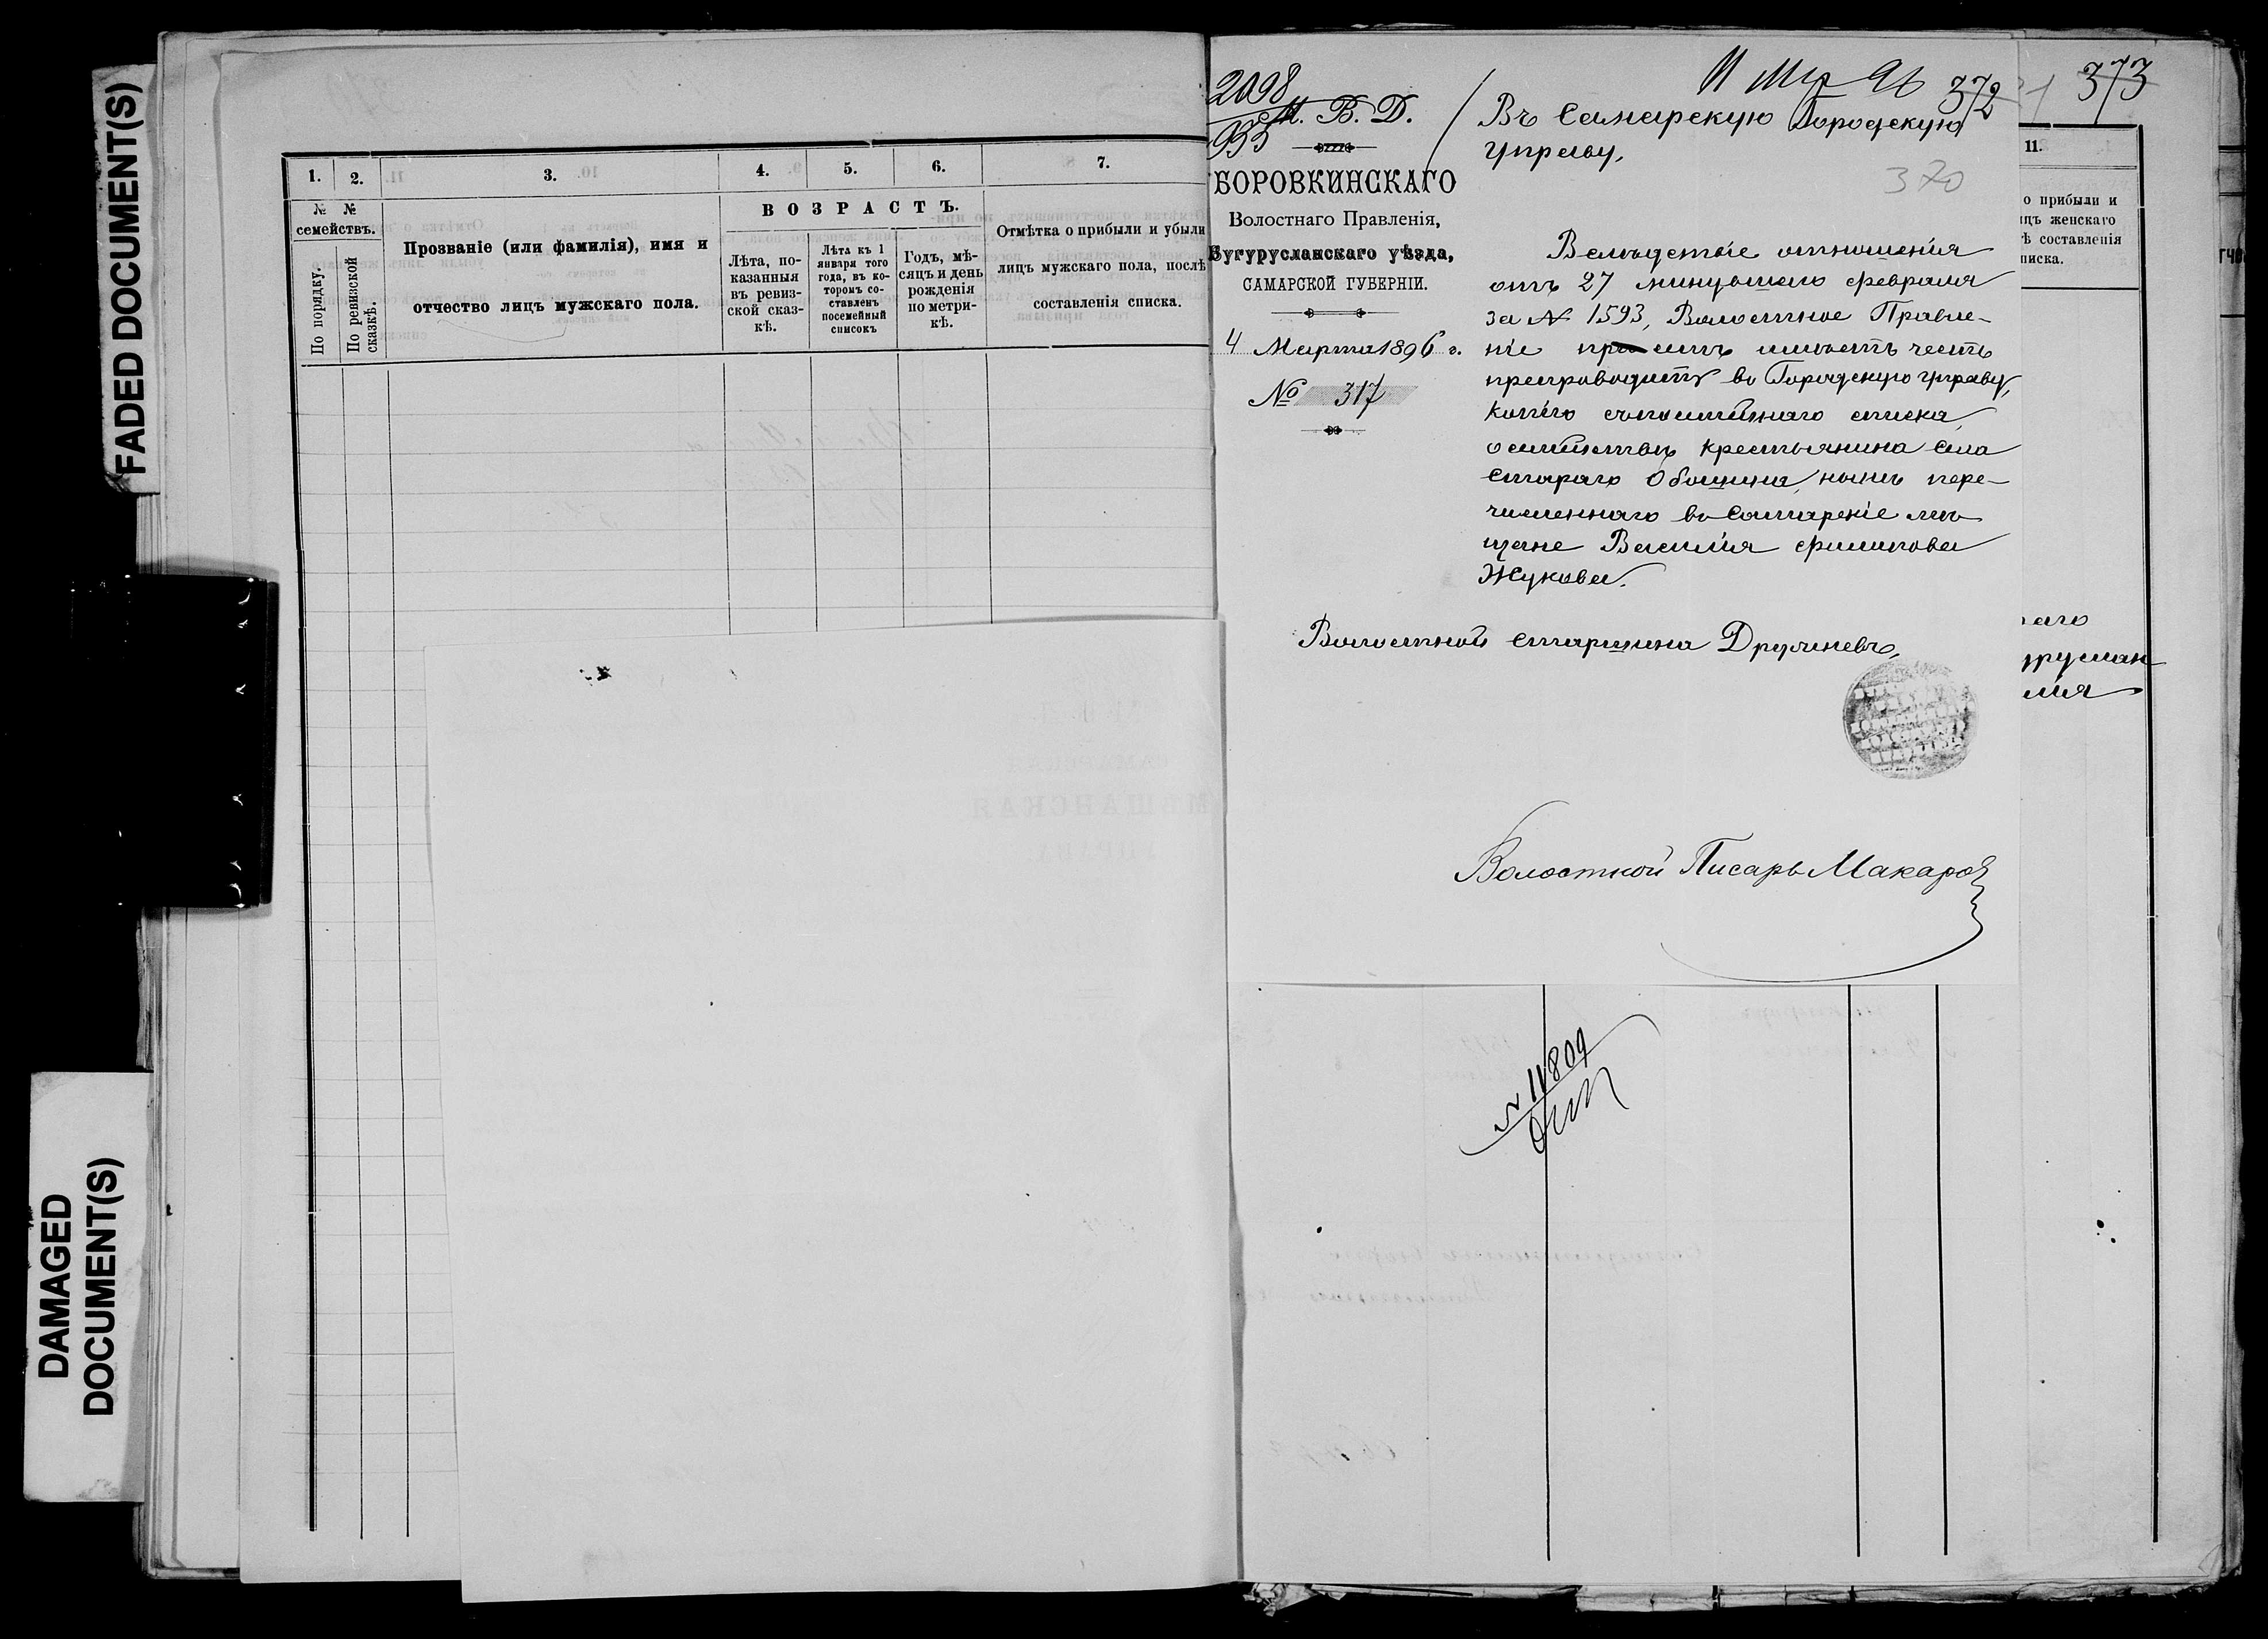 FADED DOCUMENT(S)
DAMAGED
DOCUMENT(S)
1. 2. 3. 4. 5. 6. 7.
№ №
семействъ.
По порядку.
По ревизской
сказкѣ.
Прозваніе (или фамилія), имя и
отчество лицъ мужскаго пола.
ВОЗРАСТЪ.
Лѣта, по-
казанныя
въ ревиз-
ской сказ-
кѣ.
Лѣта къ 1
января того
года, въ ко-
торомъ со-
ставленъ
посемейный
списокъ
Годъ, мѣ-
сяцъ и день
рожденія
по метри-
кѣ.
Отмѣтка о прибыли и убыли
лицъ мужскаго пола, послѣ
составленія списка.
2098
933
М. В. Д.
БОРОВКИНСКАГО
Волостнаго Правленія,
Бугурусланскаго уѣзда,
САМАРСКОЙ ГУБЕРНІИ.
4 Марта 1896 г.
№ 317
11 Мр 96
372
373
370
Въ Самарскую Городскую
Управу,
Вслѣдствіе отношенія
отъ 27 минувшаго февраля
за № 1593, Волостное Правле-
ніе проситъ имѣетъ честь
препроводить въ Городскую управу,
копію съ посемѣйнаго списка,
о семѣйствѣ крестьянина села
Стараго Обошина, нынѣ пере-
численнаго въ Самарскіе мѣ-
щане Василія Филипова
Жукова.
Волостной Старшина Дружиневъ,
Волостной Писарь Макаров
№ 11809
11.
о прибыли и
ицъ женскаго
ѣ составленія
писка.
наго
урусман
лія